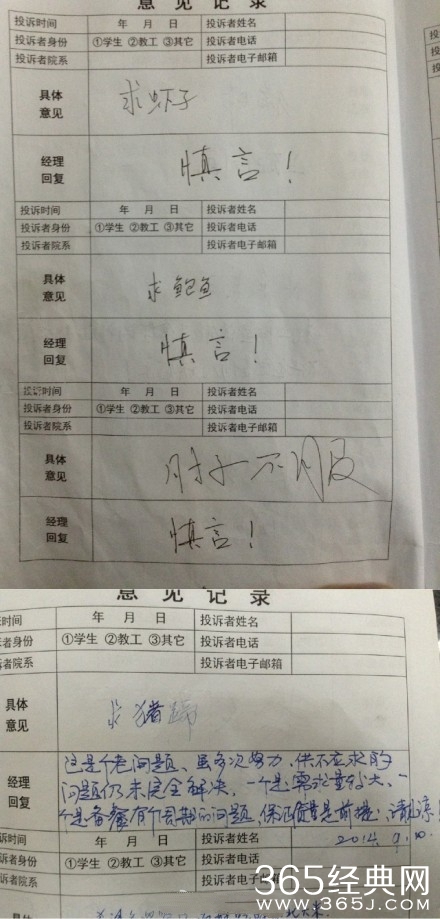 意见记录
投诉时间 年 月 日 投诉者姓名
投诉者身份 ①学生 ②教工 ③其它 投诉者电话
投诉者院系 投诉者电子邮箱
具体意见 求虾子
经理回复 慎言！
投诉时间 年 月 日 投诉者姓名
投诉者身份 ①学生 ②教工 ③其它 投诉者电话
投诉者院系 投诉者电子邮箱
具体意见 求鲍鱼
经理回复 慎言！
投诉时间 年 月 日 投诉者姓名
投诉者身份 ①学生 ②教工 ③其它 投诉者电话
投诉者院系 投诉者电子邮箱
具体意见 肘子不服
经理回复 慎言！
意见记录
诉时间 年 月 日 投诉者姓名
者身份 ①学生 ②教工 ③其它 投诉者电话
者院系 投诉者电子邮箱
具体意见 求猪蹄
经理回复
这是个老问题、虽多次努力，供不应求的
问题仍未完全解决，一个是需求量较大、一
个是备餐有个周期的问题，保证质量是前提，请见谅
2014.9.10.
诉时间 年 月 日 投诉者姓名
者身份 ①学生 ②教工 ③其它 投诉者电话
诉者院系 投诉者电子邮箱
365经典网
www.365J.com